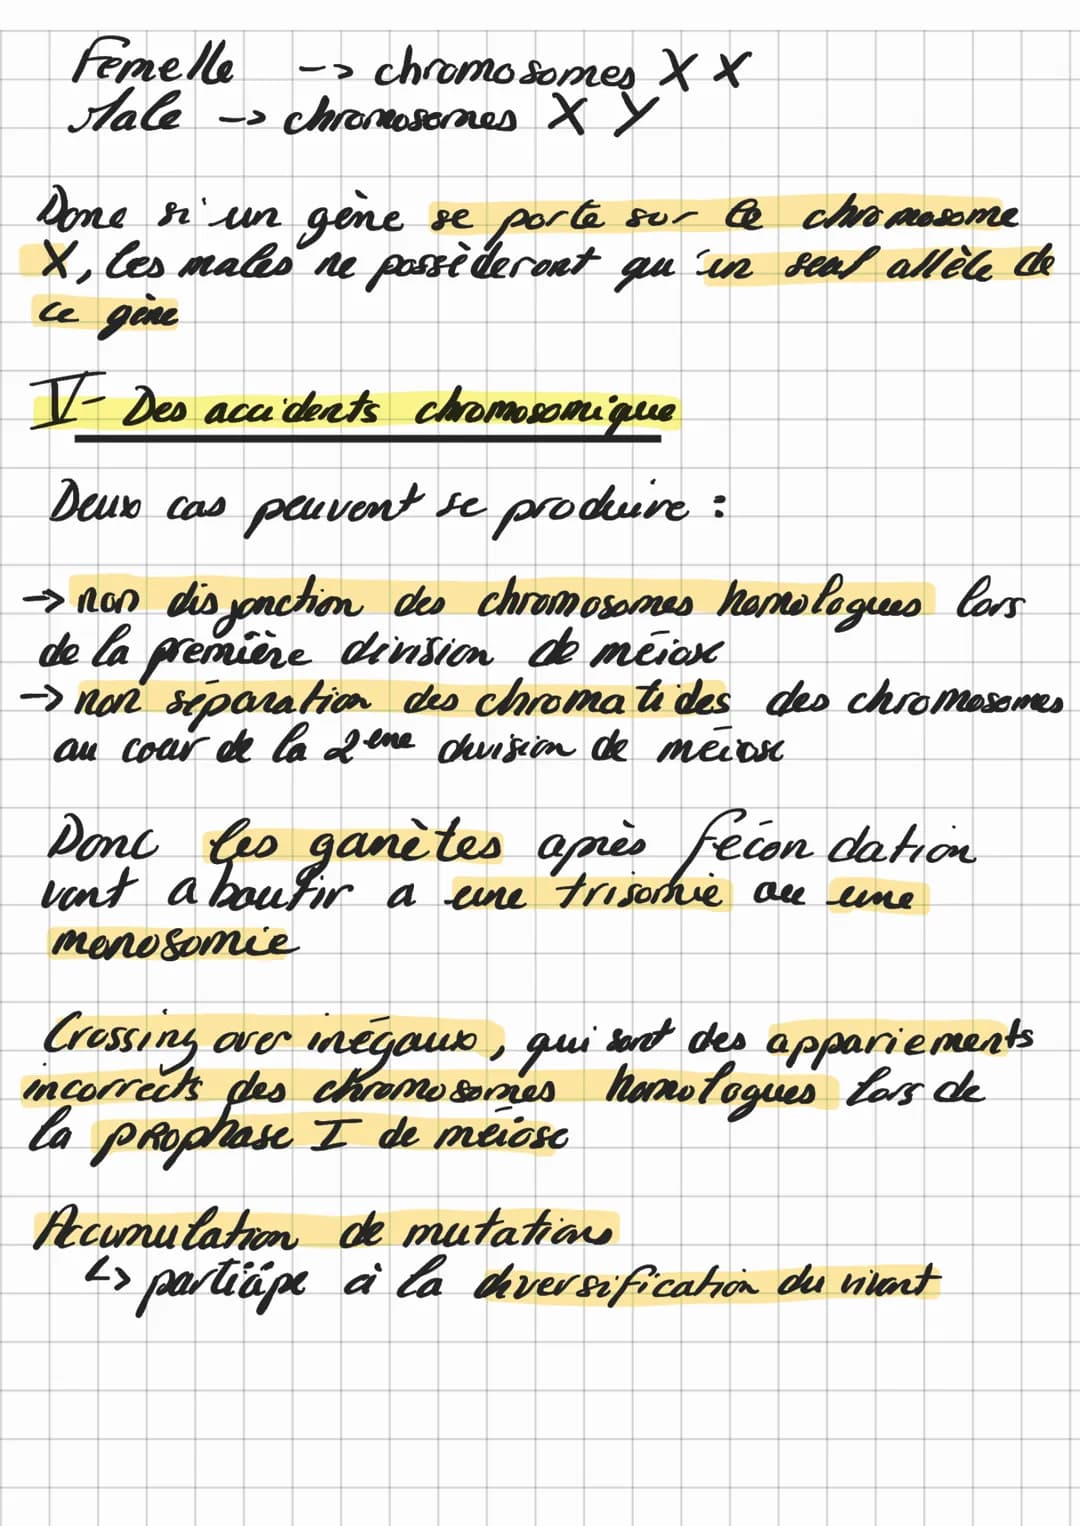 Femelle --> chromosomes X X
Male --> chromosomes X Y
Donc si un gène se porte sur le chromosome
X, les males ne possèderont qu'un seul allèle de
ce gène
V - Des accidents chromosomique
Deux cas peuvent se produire :
→ non disjonction des chromosomes homologues lors
de la première division de méiose
→ non séparation des chromatides des chromosomes
au cour de la 2ème division de méiose
Donc les gamètes après fécondation
vont aboutir a une trisomie ou une
monosomie
Crossing over inégaux, qui sont des appariements
incorrects des chromosomes homologues lors de
la prophase I de méiose
Accumulation de mutations
↳ participe à la diversification du vivant